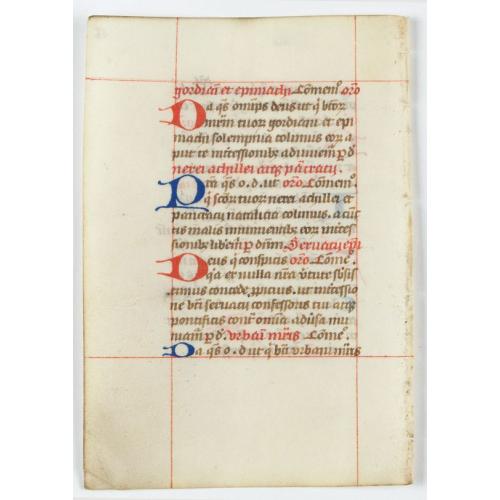 gordiani et epimachi Cōmem̄o orō
Da q̄s om̄ps deus ut q̄ btōr
mrm̄ tuor gordiani et epi
machi solempnia colimus eor a
put te int̄cessionibȝ adiuuem̄ p d̄
nerei achillei atqȝ pācratij
Da q̄s o. d. ut orō Cōmem̄o
q̄ sc̄or tuor nerei achillei et
pancracij natalicia colimus. a cūc
tis malis imminentibȝ eor int̄ces
sionibȝ liber̄em̄ p dn̄m Seruacij ep̄i
Deus q̄ conspicis orō Cōme᷒
q̄a ex nulla nr̄a v̄tute sb̄sis
timus concede p̄picius. ut int̄cessio
ne bt̄i seruacij confessoris tui atqȝ
pontificis cont̄ omnia adūsa mu
niam̄ p d̄. Vrbani mr̄is Cōme᷒
Da q̄s o. d ut q̄ bt̄i vrbani mr̄is